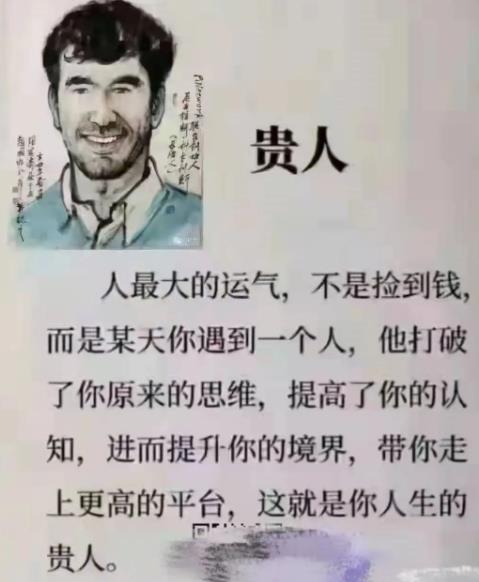 贵人
人最大的运气，不是捡到钱，
而是某天你遇到一个人，他打破
了你原来的思维，提高了你的认
知，进而提升你的境界，带你走
上更高的平台，这就是你人生的
贵人。